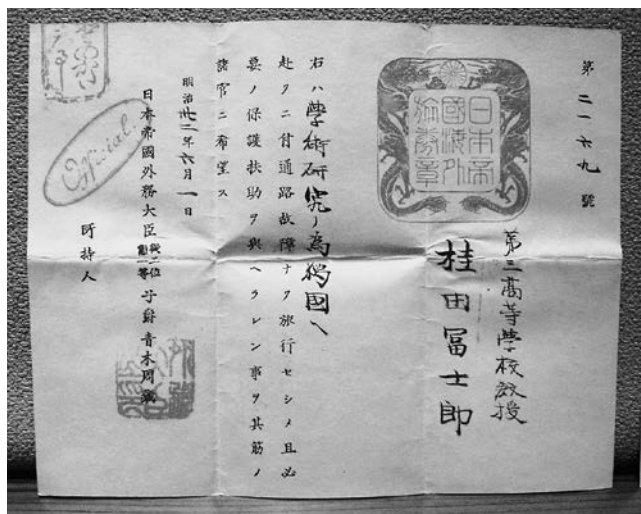 第二一六九號
日本帝
國海外
旅券章
第三高等學校敎授
桂田冨士郎
右ハ學術研究ノ為獨國ヘ
赴クニ付通路故障ナク旅行セシメ且必
要ノ保護扶助ヲ與ヘラレン事ヲ其筋ノ
諸官ニ希望ス
明治卅二年六月一日
日本帝國外務大臣從二位勳一等子爵青木周藏
所持人
Official.